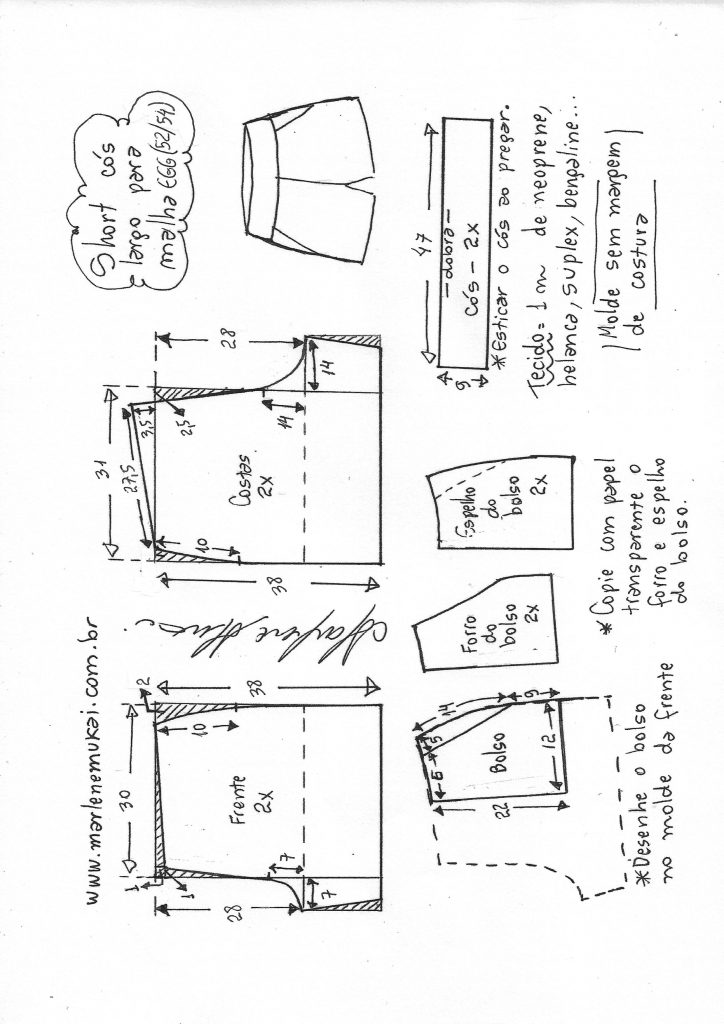 www.marlenemukai.com.br
Short cós
largo para
malha EGG (52/54)
30
1
1
2
10
38
Frente
2x
28
7
7
31
27,5
3,5
2,5
28
10
Costas
2x
14
14
38
6
5
14
9
Bolso
12
22
*Desenhe o bolso
no molde da frente
Forro
do
bolso
2x
Espelho
do
bolso
2x
*Copie com papel
transparente o
forro e espelho
do bolso.
47
9
-dobra-
cós - 2x
*Esticar o cós ao pregar.
Tecido = 1 m de neoprene,
helanca, suplex, bengaline...
Molde sem margem
de costura